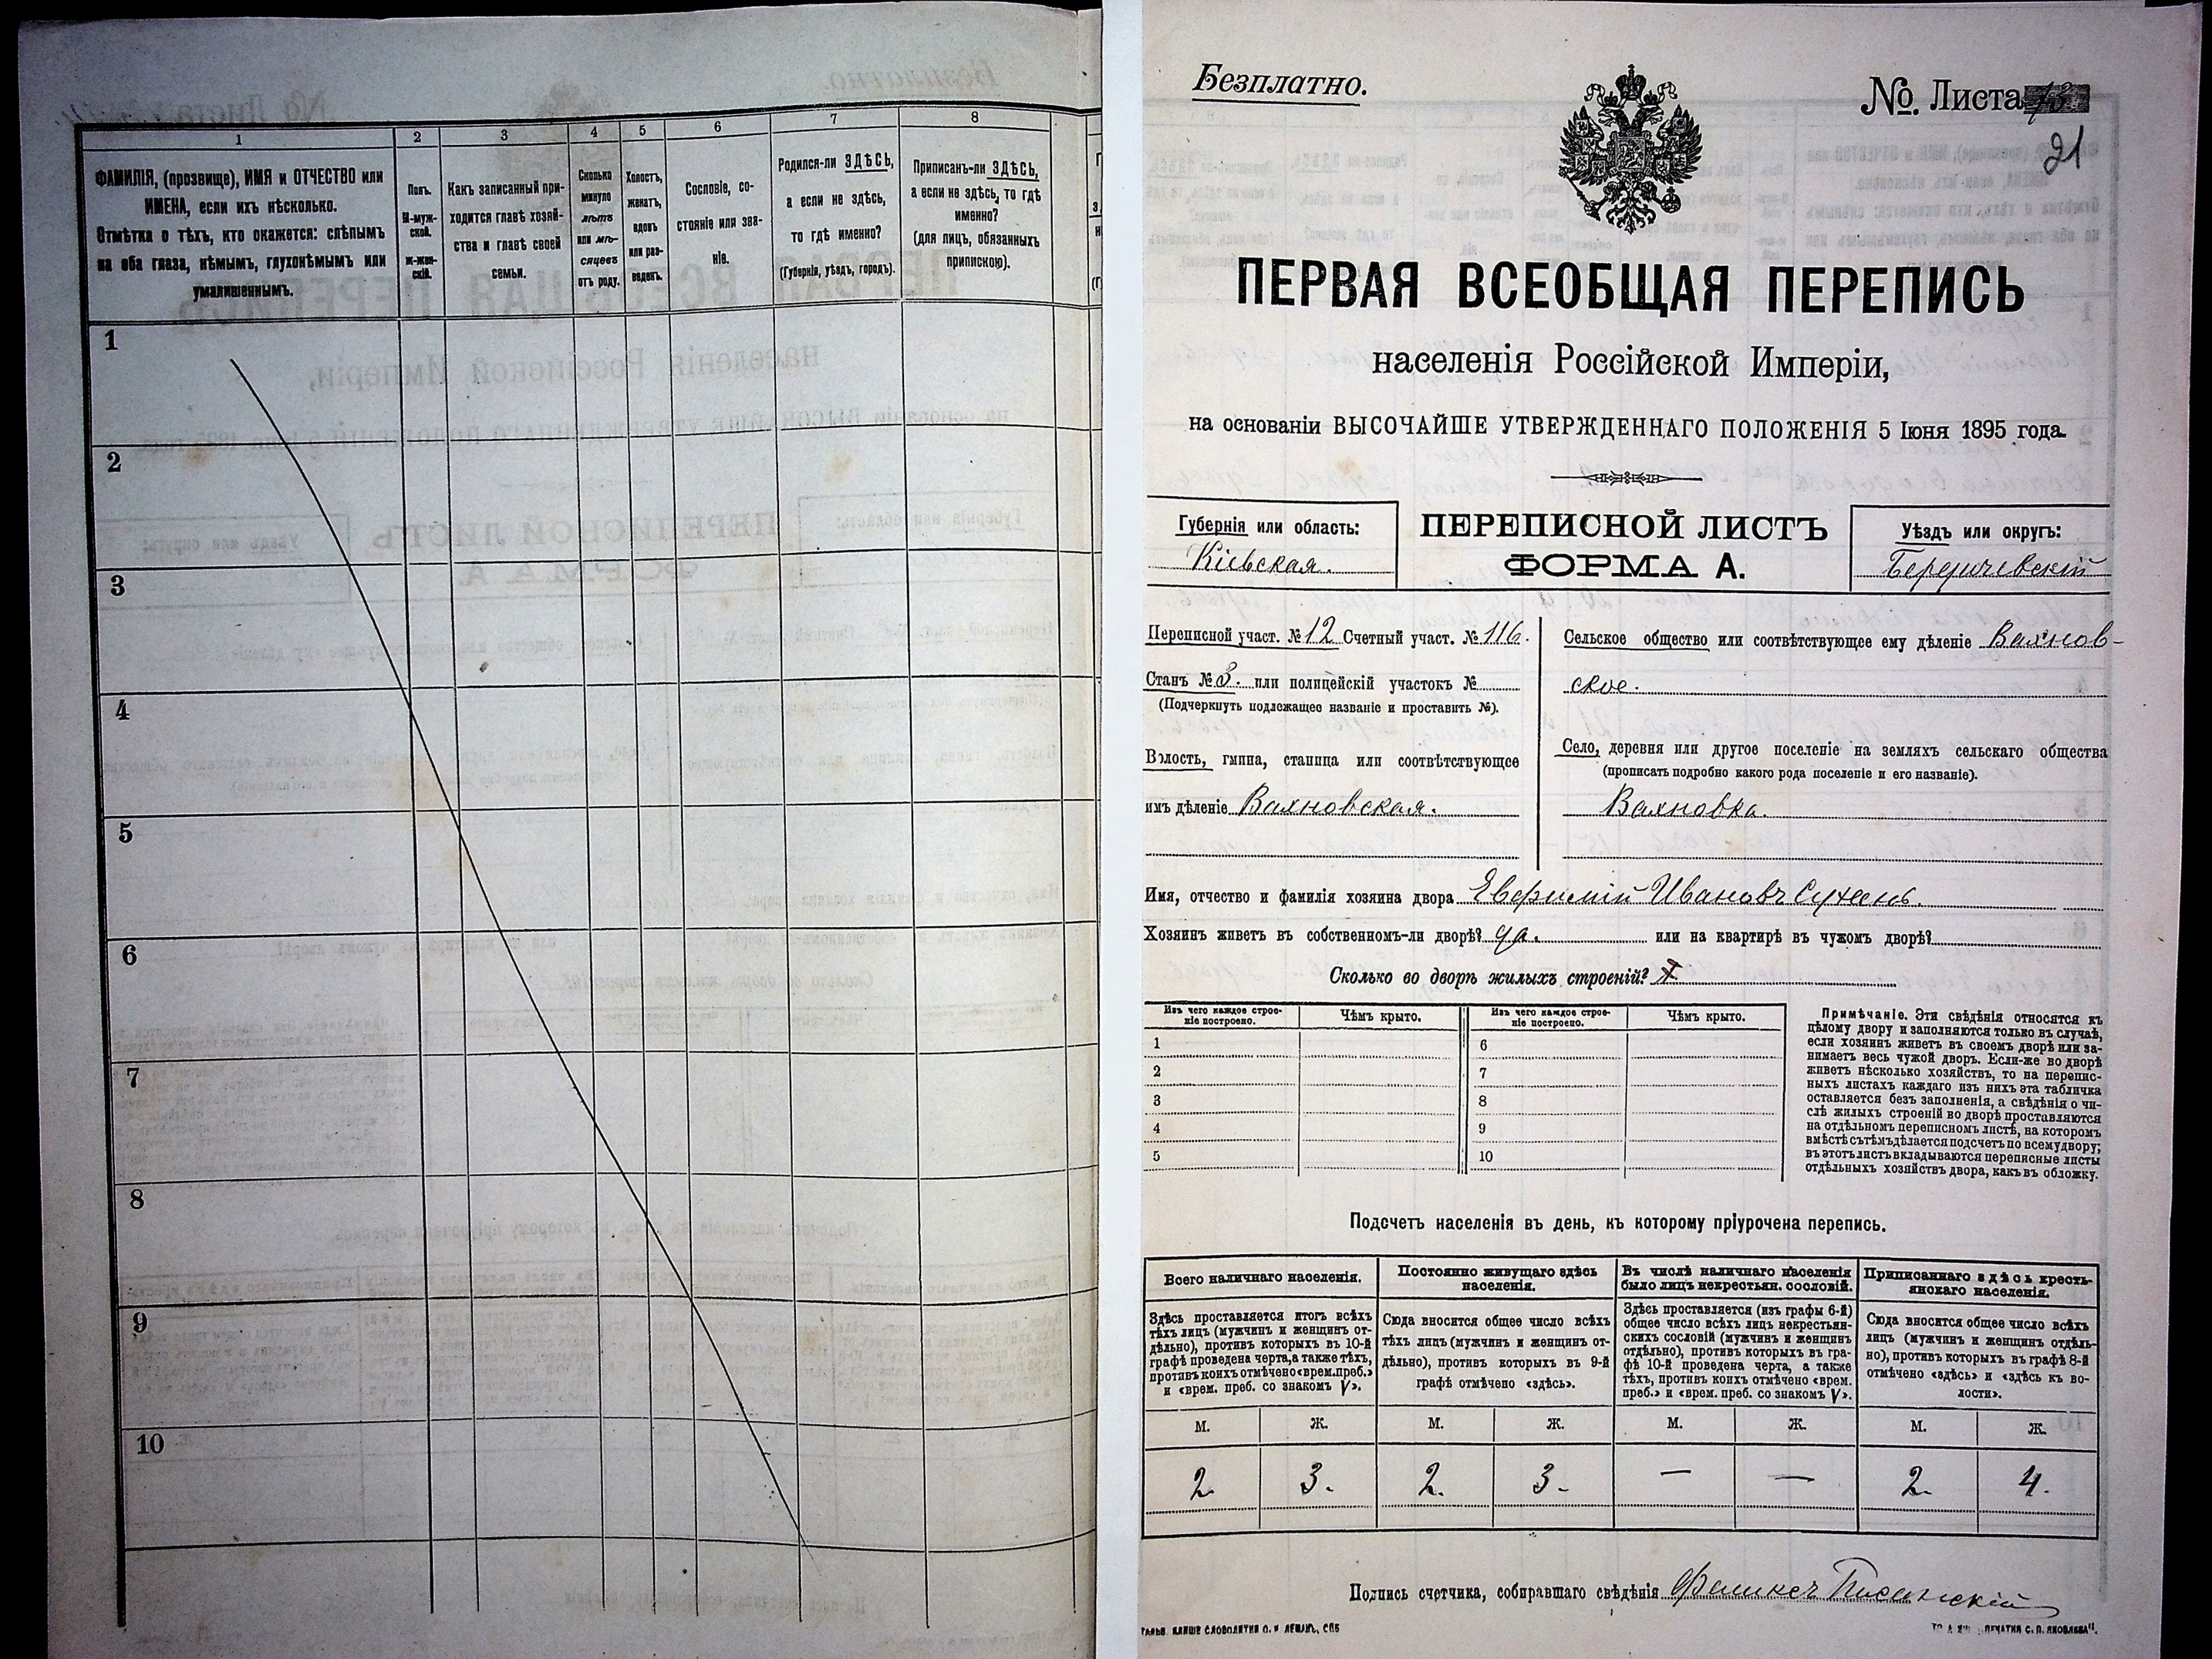 1
2
3
4
5
6
7
8
ФАМИЛІЯ, (прозвище), ИМЯ и ОТЧЕСТВО или
ИМЕНА, если ихъ нѣсколько.
Отмѣтка о тѣхъ, кто окажется: слѣпымъ
на оба глаза, нѣмымъ, глухонѣмымъ или
умалишеннымъ.
Полъ.
М-муж-
ской.
Ж-жен-
скій.
Какъ записанный при-
ходится главѣ хозяй-
ства и главѣ своей
семьи.
Сколько
минуло
лѣтъ
или мѣ-
сяцевъ
отъ роду.
Холостъ,
женатъ,
вдовъ
или раз-
веденъ.
Сословіе, со-
стояніе или зва-
ніе.
Родился-ли ЗДѢСЬ,
а если не здѣсь,
то гдѣ именно?
(Губернія, уѣздъ, городъ).
Приписанъ-ли ЗДѢСЬ,
а если не здѣсь, то гдѣ
именно?
(для лицъ, обязанныхъ
припискою).
1
2
3
4
5
6
7
8
9
10
Безплатно.
№ Листа
21
ПЕРВАЯ ВСЕОБЩАЯ ПЕРЕПИСЬ
населенія Россійской Имперіи,
на основаніи ВЫСОЧАЙШЕ УТВЕРЖДЕННАГО ПОЛОЖЕНІЯ 5 Іюня 1895 года.
Губернія или область:
Кіевская.
ПЕРЕПИСНОЙ ЛИСТЪ
ФОРМА А.
Уѣздъ или округъ:
Бердичевскій
Переписной участ. № 12 Счетный участ. № 116.
Станъ № 3. или полицейскій участокъ №
(Подчеркнуть подлежащее названіе и проставить №).
Волость, гмина, станица или соотвѣтствующее
имъ дѣленіе Вахновская.
Сельское общество или соотвѣтствующее ему дѣленіе Вахнов-
ское.
Село, деревня или другое поселеніе на земляхъ сельскаго общества
(прописать подробно какого рода поселеніе и его названіе).
Вахновка.
Имя, отчество и фамилія хозяина двора Евфимій Ивановъ Сухань.
Хозяинъ живетъ въ собственномъ-ли дворѣ? да. или на квартирѣ въ чужомъ дворѣ?
Сколько во дворѣ жилыхъ строеній?
Изъ чего каждое строе-
ніе построено.
Чѣмъ крыто.
Изъ чего каждое строе-
ніе построено.
Чѣмъ крыто.
1
6
2
7
3
8
4
9
5
10
Примѣчаніе. Эти свѣдѣнія относятся къ
цѣлому двору и заполняются только въ случаѣ,
если хозяинъ живетъ въ своемъ дворѣ или за-
нимаетъ весь чужой дворъ. Если-же во дворѣ
живетъ нѣсколько хозяйствъ, то на перепис-
ныхъ листахъ каждаго изъ нихъ эта табличка
оставляется безъ заполненія, а свѣдѣнія о чи-
слѣ жилыхъ строеній во дворѣ проставляются
на отдѣльномъ переписномъ листѣ, на которомъ
вмѣстѣ съ тѣмъ дѣлается подсчетъ по всему двору;
въ этотъ листъ вкладываются переписные листы
отдѣльныхъ хозяйствъ двора, какъ въ обложку.
Подсчетъ населенія въ день, къ которому пріурочена перепись.
Всего наличнаго населенія.
Здѣсь проставляется итогъ всѣхъ
тѣхъ лицъ (мужчинъ и женщинъ от-
дѣльно), противъ которыхъ въ 10-й
графѣ проведена черта, а также тѣхъ,
противъ коихъ отмѣчено «врем. преб.»
и «врем. преб. со знакомъ V».
Постоянно живущаго здѣсь
населенія.
Сюда вносится общее число всѣхъ
тѣхъ лицъ (мужчинъ и женщинъ от-
дѣльно), противъ которыхъ въ 9-й
графѣ отмѣчено «здѣсь».
Въ числѣ наличнаго населенія
было лицъ некрестьян. сословій.
Здѣсь проставляется (изъ графы 6-й)
общее число всѣхъ лицъ некрестьян-
скихъ сословій (мужчинъ и женщинъ
отдѣльно), противъ которыхъ въ гра-
фѣ 10-й проведена черта, а также
тѣхъ, противъ коихъ отмѣчено «врем.
преб.» и «врем. преб. со знакомъ V».
Приписаннаго здѣсь кресть-
янскаго населенія.
Сюда вносится общее число всѣхъ
лицъ (мужчинъ и женщинъ отдѣль-
но), противъ которыхъ въ графѣ 8-й
отмѣчено «здѣсь» и «здѣсь къ во-
лости».
М. Ж. М. Ж. М. Ж. М. Ж.
2. 3. 2. 3. — — 2. 4.
Подпись счетчика, собиравшаго свѣдѣнія Феликсъ